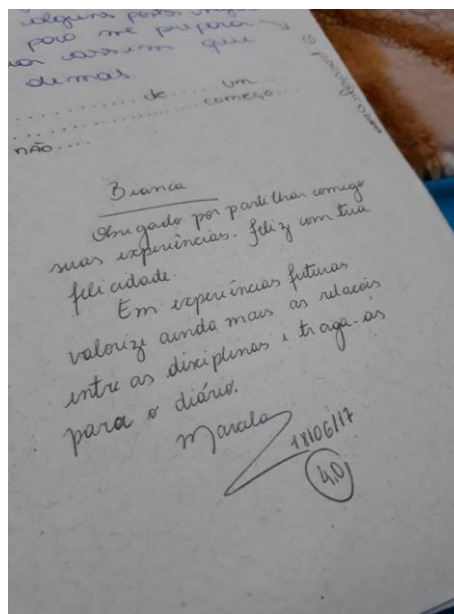 alguns pontos
para me preparar
assim que
demas.
............ de ..... um....
................ começo...
não.....
Bianca
Obrigado por partilhar comigo
suas experiências. feliz com tua
felicidade.
Em experiências futuras
valorize ainda mais as relacois
entre as disciplinas e traga-as
para o diário.
18/06/17
4,0